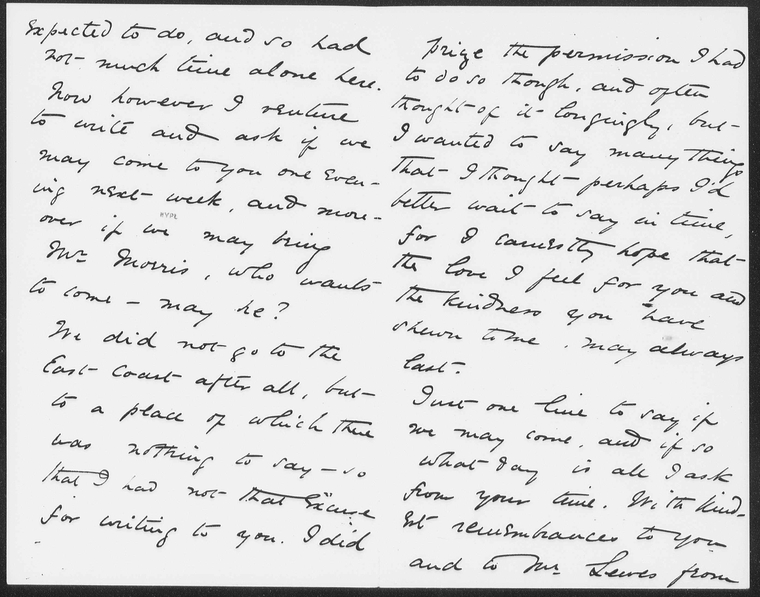 Expected to do, and so had
not much time alone here.
Now however I venture
to write and ask if we
may come to you one even-
ing next week, and more-
over if we may bring
Mr Morris, who wants
to come – may he?
We did not go to the
East Coast after all, but
to a place of which there
was nothing to say – so
that I had not that Excuse
for writing to you. I did
prize the permission I had
to do so though, and often
thought of it longingly, but
I wanted to say many things
that I thought perhaps I'd
better wait to say in time,
for I earnestly hope that
the love I feel for you and
the kindness you have
shewn to me, may always
last.
Just one line to say if
we may come, and if so
what day is all I ask
from your time. With kind-
est remembrances to you
and to Mr Lewes from